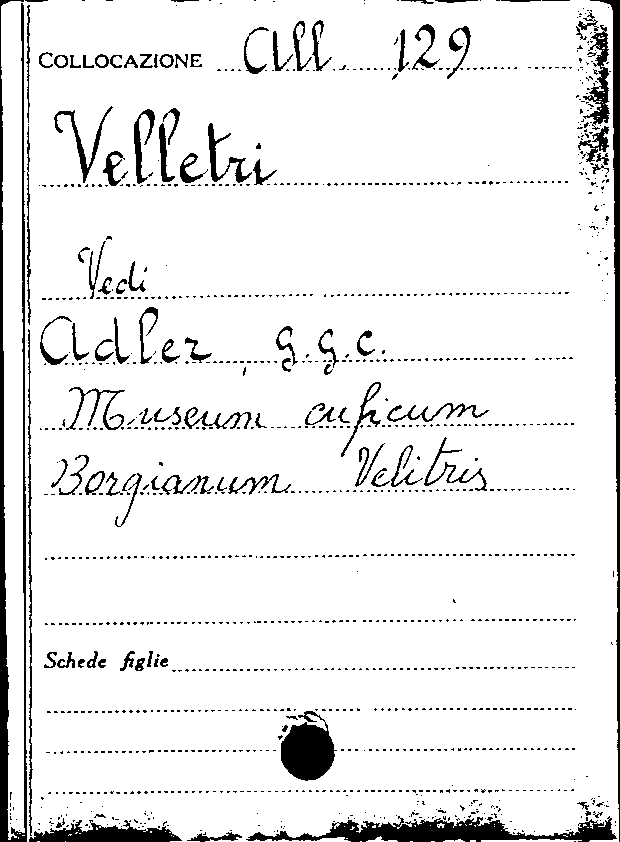 COLLOCAZIONE All. 129
Velletri
Vedi
Adler, G.G.C.
Museum cuficum
Borgianum Velitris
Schede figlie